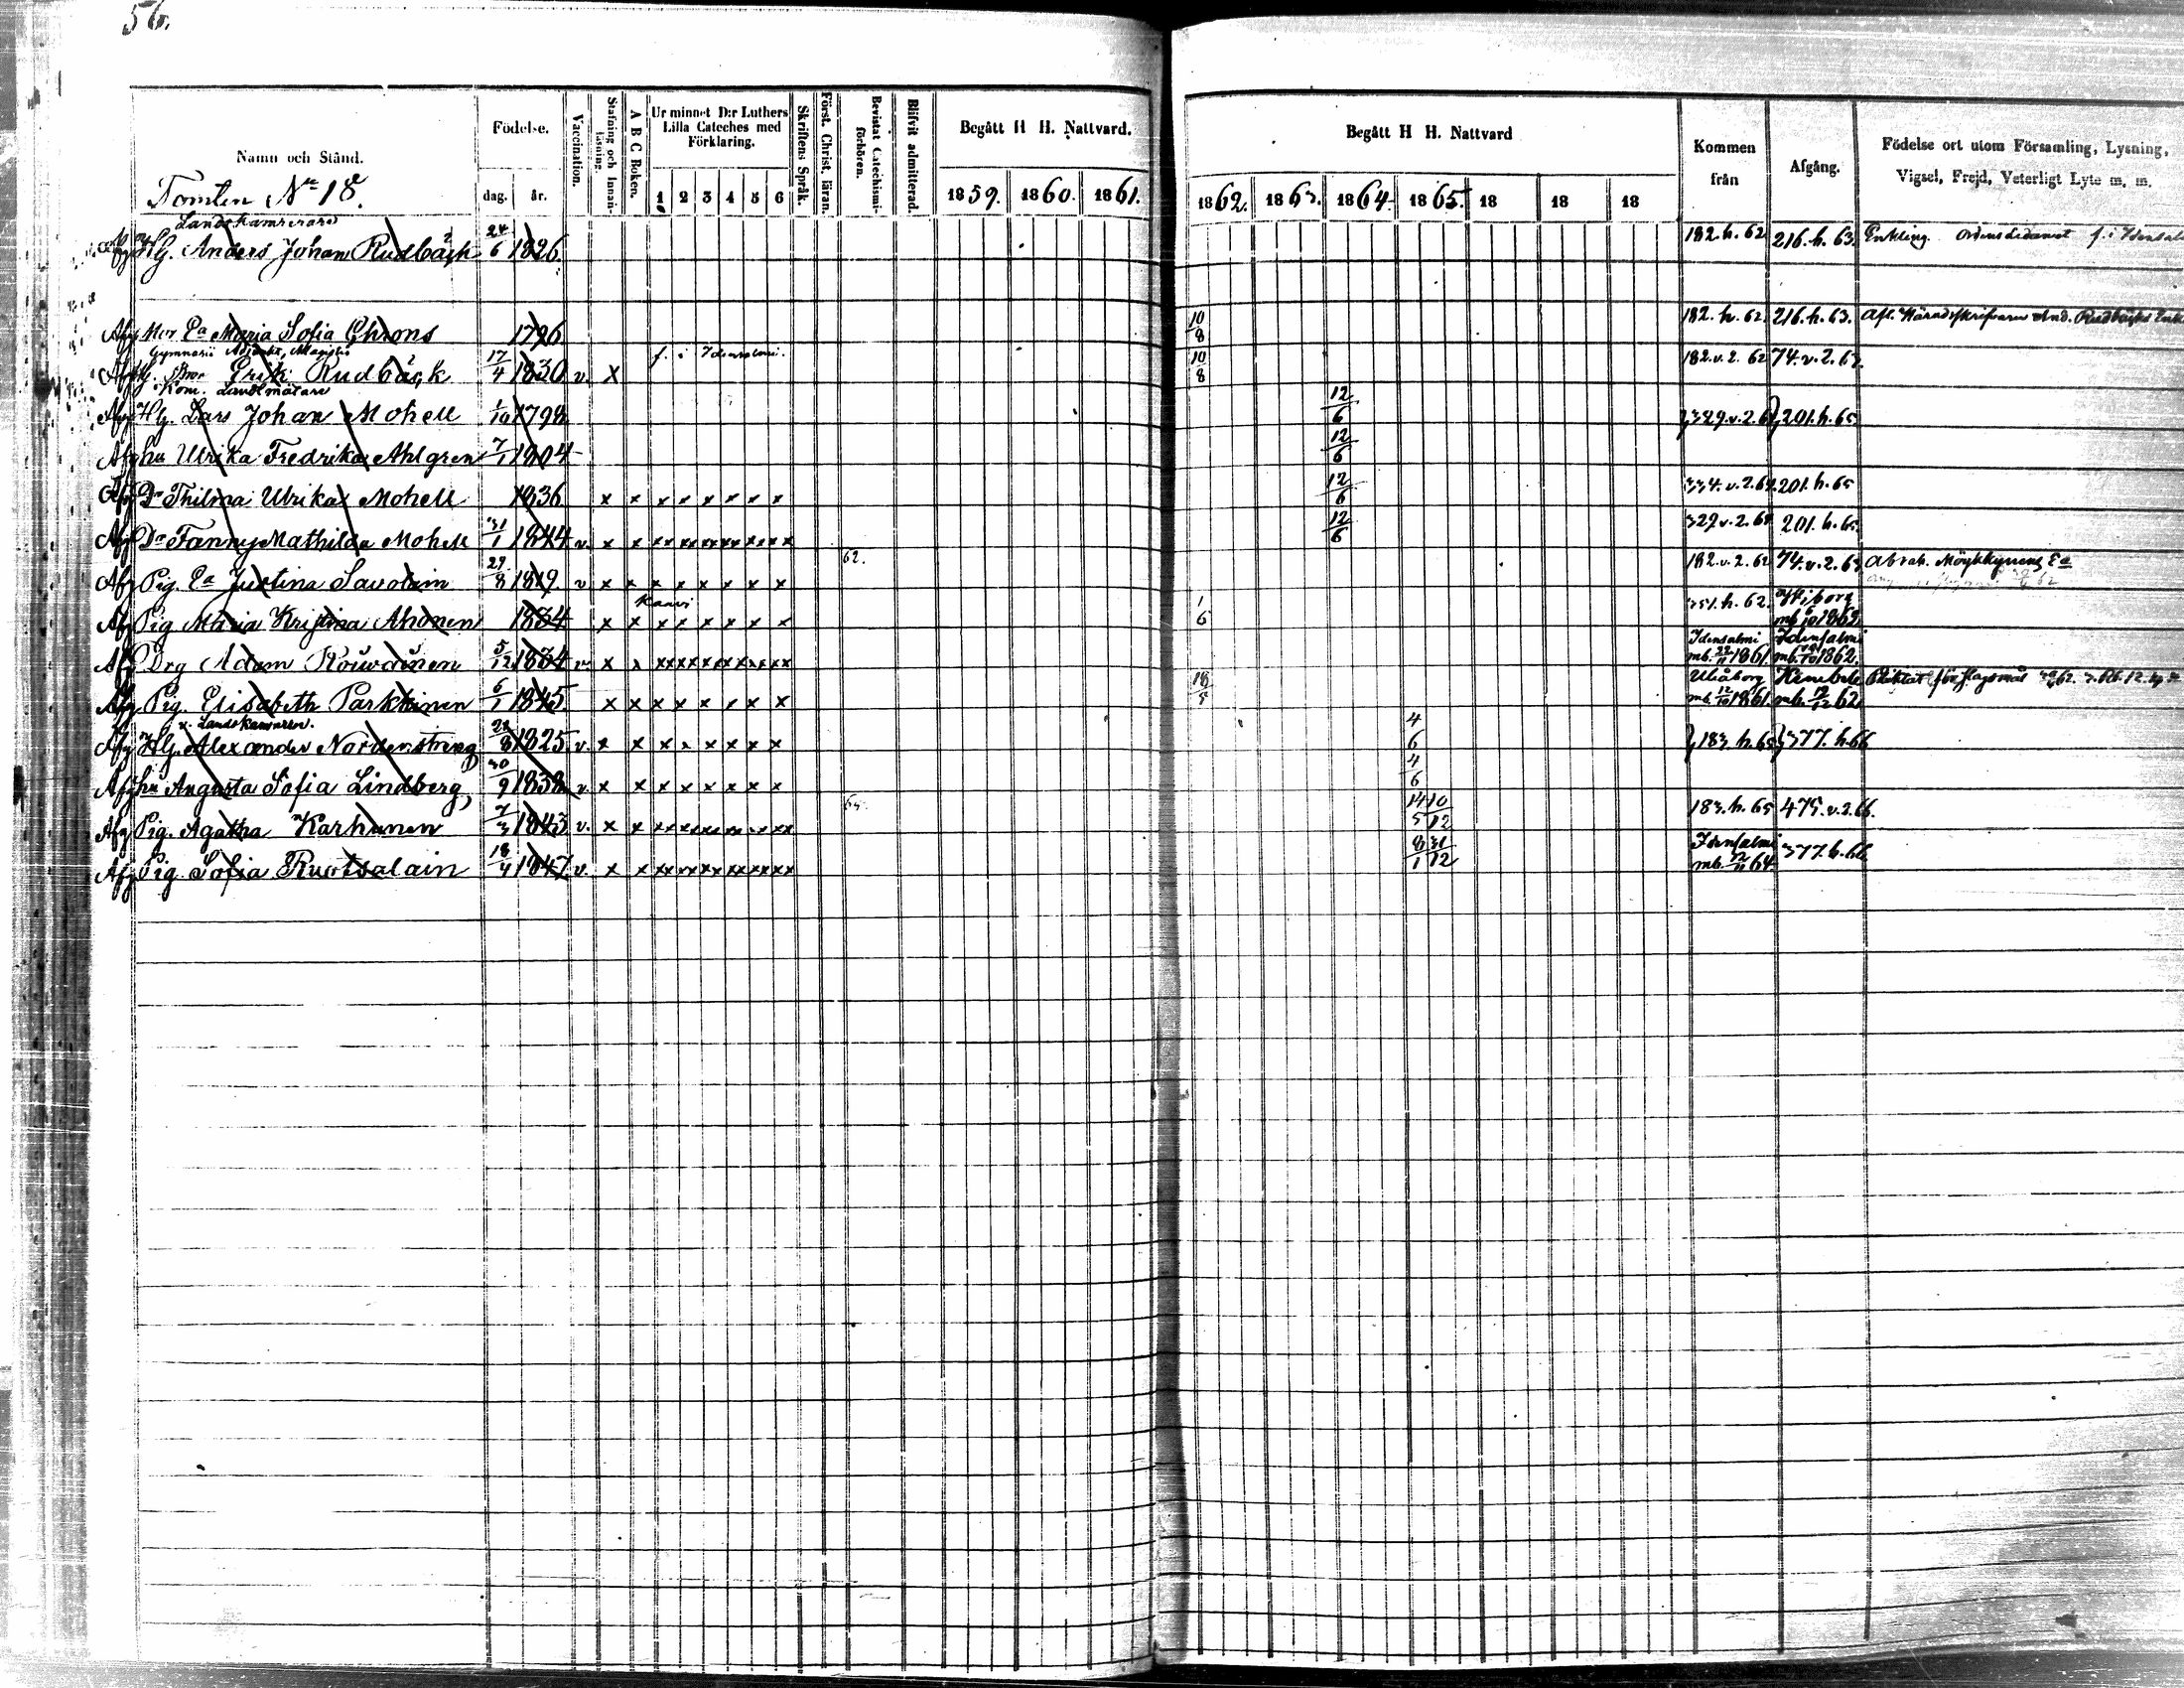 56.
Namn och Stånd.
Födelse.
dag. år.
Vaccination.
Stafning och Innanläsning.
A B C Boken.
Ur minnet D:r Luthers Lilla Cateches med Förklaring.
1 2 3 4 5 6
Skriftens Språk.
Först. Christ. läran.
Bevistat Catechismiförhören.
Blifvit admitterad.
Begått H H. Nattvard.
1859. 1860. 1861.
Begått H H. Nattvard
1862. 1863. 1864. 1865. 18 18 18
Kommen från
Afgång.
Födelse ort utom Församling, Lysning, Vigsel, Frejd, Veterligt Lyte m. m.
Tomten No 18.
Landskamrerare
Afg Hg. Anders Johan Rudbäck 24/6 1826. 182.h.62 216.h.63. Enkling.
Afg Mor Ea Maria Sofia Chrons 1796 10/8 182.h.62. 216.h.63. Afl. Häradsskrifvaren And. Rudbäcks Enka
Gymnasii Adjunkt, Magistr f. i Idensalmi.
Afg Erik Rudbäck 17/4 1830 v. x 10/8 182.v.2.62 74.v.2.63.
Kom. Landtmätare
Afg Hg. Lars Johan Mohell 1/10 1798 12/6 329.v.2.64 201.h.65
Afg hu Ulrika Fredrika Ahlgren 7/1 1804 12/6
Afg Dr Thilma Ulrika Mohell 1836 x x x x x x x x 12/6 334.v.2.64. 201.h.65
Afg Dr Fanny Mathilda Mohell 31/1 1844 v. x x xx xx xx xx xx xx 12/6 329.v.2.64 201.h.65.
Afg Pig. Ea Justina Savolain 29/8 1819. v x x x x x x x x 62. 182.v.2.62 74.v.2.63 Abrah. Möykkynens Ea
Kaavi
Afg Pig Maria Kristina Ahonen 1834 x x x x x x x x 1/6 351.h.62. Wiborg mb 6/10 1862
Afg Drg Adam Rouvainen 5/12 1834 v x x xx xx xx xx xx xx Idensalmi mb. 22/11 1861. Idensalmi mb. 1862.
Afg Pig. Elisabeth Parkkinen 6/1 1845 x x x x x x x x 18/5 Uleåborg mb. 12/10 1861. mb. 62.
v. Landskamrerer.
Afg Hg. Alexander Nordenstreng 28/8 1825 v. x x x x x x x x 4/6 183.h.65 377.h.66
Afg hu Augusta Sofia Lindberg, 30/9 1838 v. x x x x x x x x 4/6
Afg Pig. Agatha Karhunen 7/3 1843 v. x x xx xx xx xx xx xx 65. 14/5 10/12 183.h.65 475.v.2.66.
Afg Pig. Sofia Ruotsalain 18/4 1847 v. x x xx xx xx xx xx xx 8/1 31/12 Idensalmi mb. 64. 377.h.66.